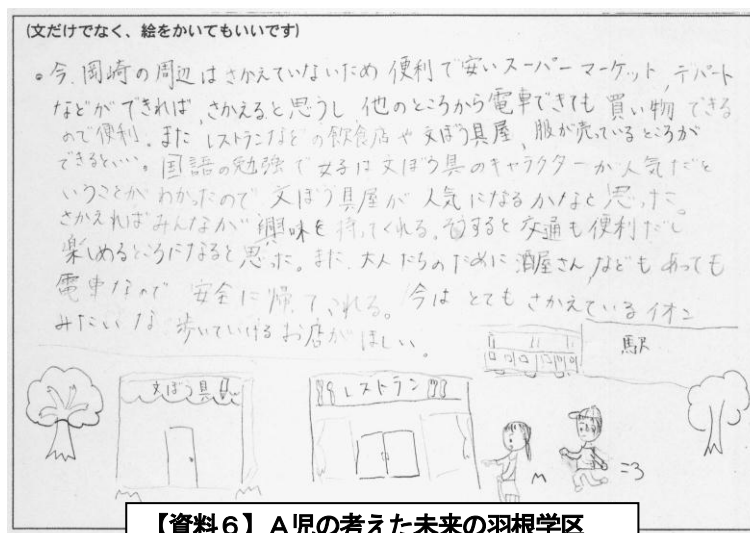 (文だけでなく、絵をかいてもいいです)
。今、岡崎の周辺はさかえていないため 便利で安いスーパーマーケット、デパート
などができれば、さかえると思うし 他のところから電車できても 買い物できる
ので便利。また レストランなどの飲食店や文ぼう具屋、服が売っているところが
できるといい。国語の勉強で女子は文ぼう具のキャラクターが人気だと
いうことがわかったので 文ぼう具屋が人気になるかなと思った。
さかえればみんなが興味を持ってくれる。そうすると交通も便利だし
楽しめるところになると思った。また、大人たちのために酒屋さんなどもあっても
電車なので 安全に帰てこれる。今は とてもさかえているイオン
みたいな 歩いていけるお店がほしい。
駅
文ぼう具
レストラン
【資料6】A児の考えた未来の羽根学区